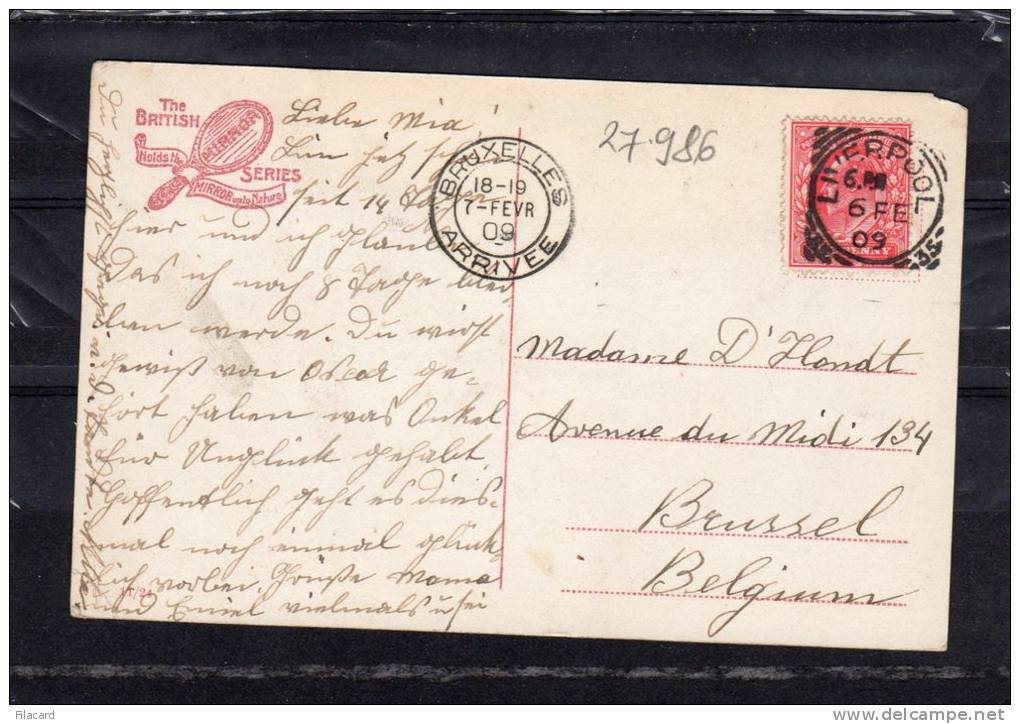 The
BRITISH
MIRROR
Holds the
SERIES
MIRROR up to Nature
Liebe Mia!
Bin jetz schon
seit 14 Tagen
hier und ich glaube
Das ich noch 8 Tage blei-
ben werde. Du wirst
gewiß von Oscar ge-
hört haben was Onkel
für Unglück gehabt.
Hoffentlich geht es dies-
mal noch einmal glück-
lich vorbei. Grüße Mama
und Emiel vielmals u sei
Du herzlich
11/24
BRUXELLES
18-19
7-FEVR
09
ARRIVEE
27.986
LIVERPOOL
6. PM
6 FE
09
35
PENNY
Madame D'Hondt
Avenue du Midi 134
Brussel
Belgium
Filacard
delcampe.net